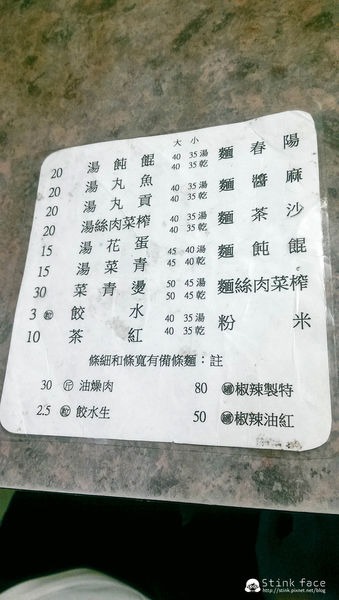 小 大
陽春麵 湯35 40
乾35 40
麻醬麵 湯35 40
乾35 40
沙茶麵 湯35 40
乾35 40
餛飩麵 湯40 45
乾40 45
榨菜肉絲麵 湯45 50
乾45 50
米粉 湯35 40
乾35 40
餛飩湯 20
魚丸湯 20
貢丸湯 20
榨菜肉絲湯 20
蛋花湯 15
青菜湯 15
燙青菜 30
水餃 粒 3
紅茶 10
註：麵條有備寬條和細條
特製辣椒罐 80
紅油辣椒罐 50
肉燥油 斤 30
生水餃 粒 2.5
Stink face
http://stink.pixnet.net/blog